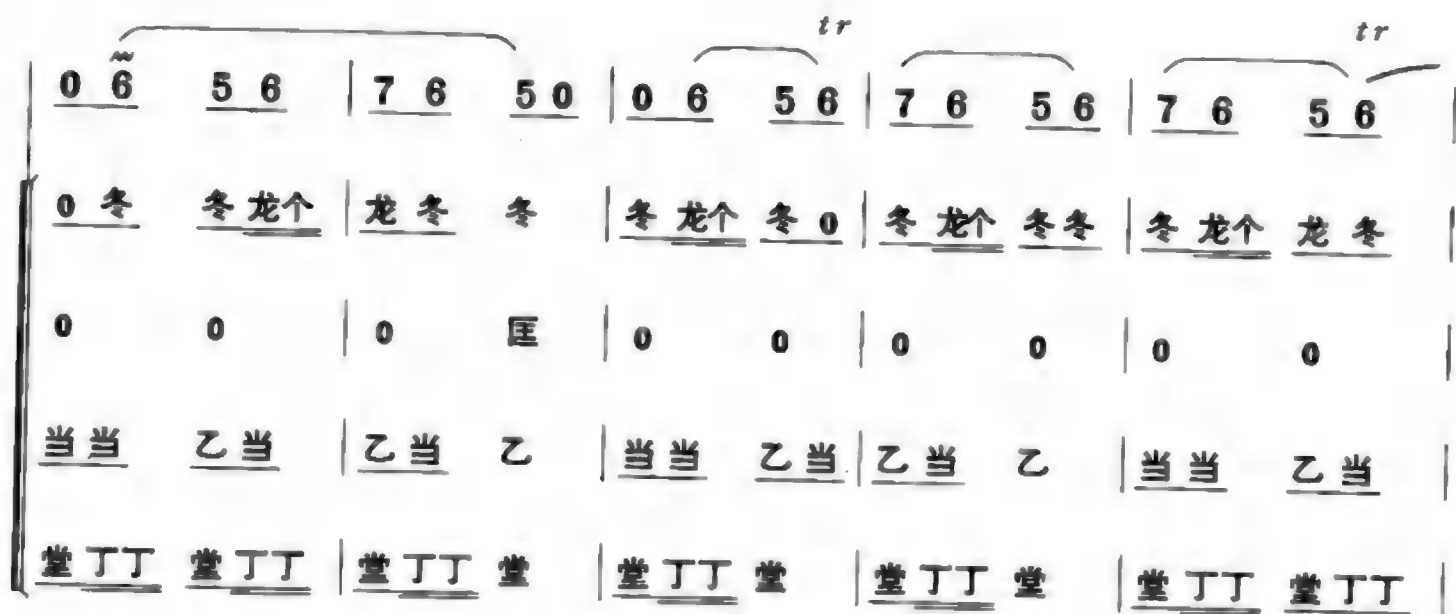 tr tr
0 6 5 6 7 6 5 0 0 6 5 6 7 6 5 6 7 6 5 6
0 冬 冬 龙个 龙 冬 冬 冬 龙个 冬 0 冬 龙个 冬冬 冬 龙个 龙 冬
0 0 0 匡 0 0 0 0 0 0
当当 乙当 乙当 乙 当当 乙当 乙当 乙 当当 乙当
堂丁丁 堂丁丁 堂丁丁 堂 堂丁丁 堂 堂丁丁 堂 堂丁丁 堂丁丁